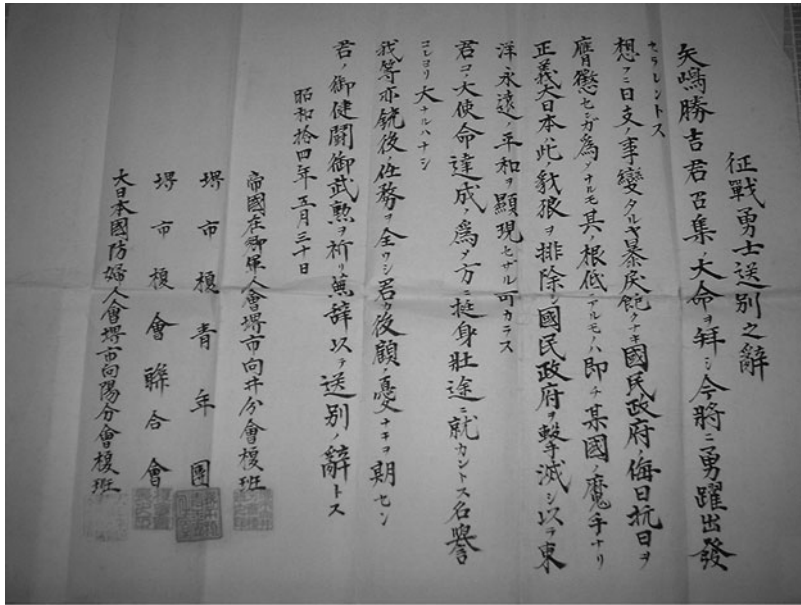 征戰勇士送別之辭
矢嶋勝吉君召集ノ大命ヲ拜シ今將ニ勇躍出發
セラレントス
想フニ日支ノ事變タルヤ暴戻飽クナキ國民政府ノ侮日抗日ヲ
膺懲センガ為ノナルモ其ノ根低ニアルモノハ即チ某國ノ魔手ナリ
正義大日本ハ此ノ豺狼ヲ排除シ國民政府ヲ擊滅シ以テ東
洋永遠ノ平和ヲ顯現セザル可カラス
君コノ大使命達成ノ為メ方ニ挺身壯途ニ就カントス名譽
コレヨリ大ナルハナシ
我等亦銃後ノ任務ヲ全ウシ君ガ後顧ノ憂ナキヲ期セン
君ノ御健闘御武勲ヲ祈リ蕪辞以テ送別ノ辭トス
昭和拾四年五月三十日
帝國在郷軍人會堺市向井分會榎班
堺市榎青年團
堺市榎會聯合會
大日本國防婦人會堺市向陽分會榎班